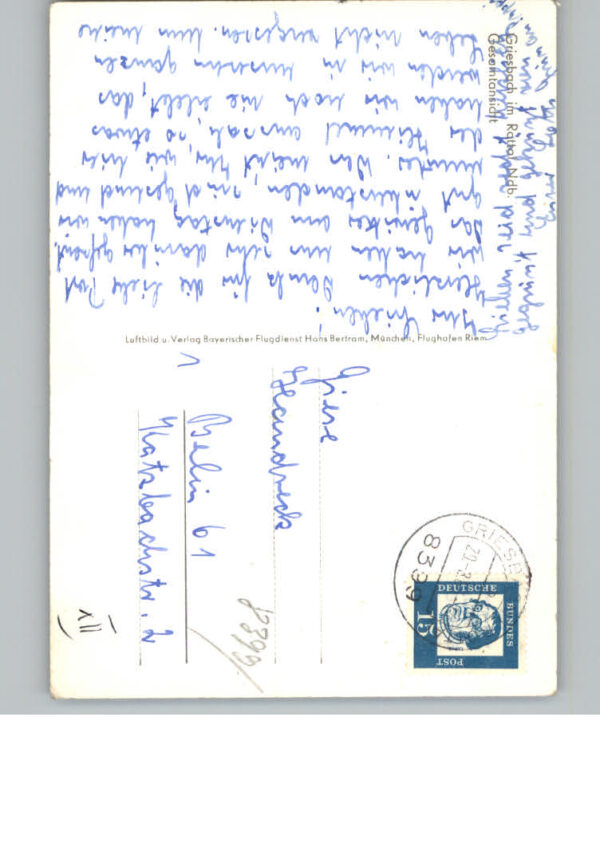 Griesbach im Rottal, Ndb.
Gesamtansicht
Ihr Lieben!
Herzlichen Dank für die liebe Post
wir haben uns sehr darüber gefreut.
Das Gewitter am Dienstag haben wir
gut überstanden, sind gesund und
munter. Was meint Ihr, wie hier
der Himmel aussah, so etwas
haben wir noch nie erlebt, das
werden wir in unserem ganzen
Leben nicht vergessen. Nun meine
Luftbild u. Verlag Bayerischer Flugdienst Hans Bertram, München, Flughafen Riem
Giese
1
Berlin 61
Katzbachstr. 2
GRIESB
20.
8399
DEUTSCHE
BUNDES
POST
15
8399
XII